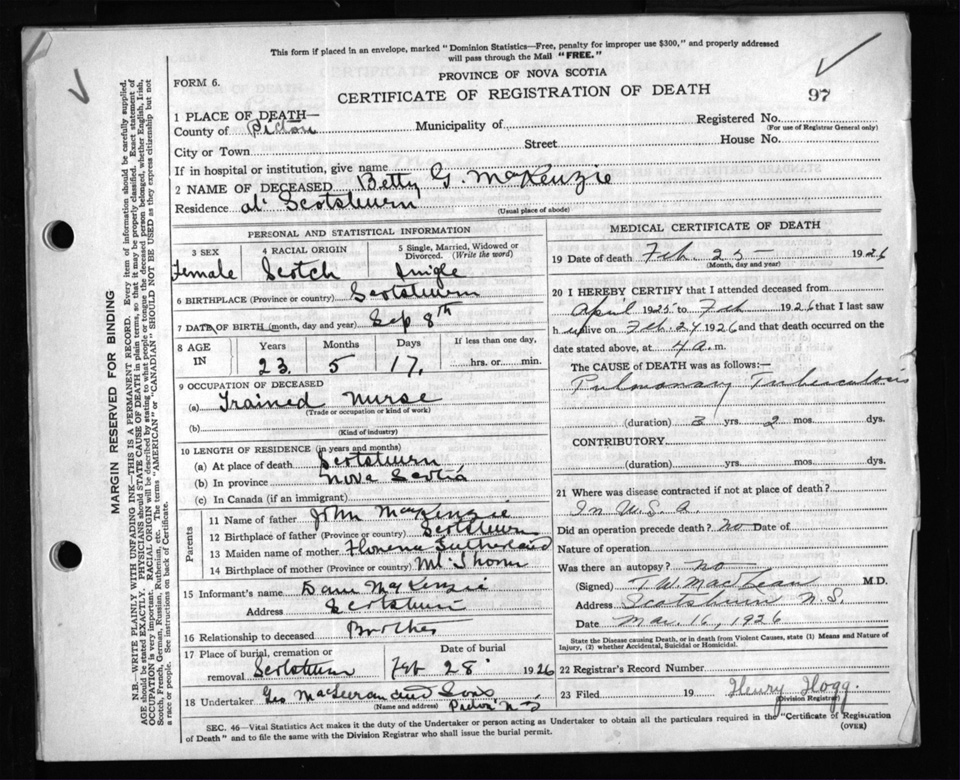 This form if placed in an envelope, marked "Dominion Statistics—Free, penalty for improper use $300," and properly addressed
will pass through the Mail "FREE."
PROVINCE OF NOVA SCOTIA
FORM 6.
CERTIFICATE OF REGISTRATION OF DEATH
97
1 PLACE OF DEATH—
County of Pictou Municipality of Registered No.
(For use of Registrar General only)
City or Town Street House No.
If in hospital or institution, give name
2 NAME OF DECEASED Betty G. MacKenzie
Residence at Scotsburn
(Usual place of abode)
PERSONAL AND STATISTICAL INFORMATION
3 SEX 4 RACIAL ORIGIN 5 Single, Married, Widowed or Divorced. (Write the word)
Female Scotch Single
6 BIRTHPLACE (Province or country) Scotsburn
7 DATE OF BIRTH (month, day and year) Sep 8th
8 AGE IN Years Months Days If less than one day,
23 5 17. hrs. or min.
9 OCCUPATION OF DECEASED
(a) Trained Nurse
(Trade or occupation or kind of work)
(b)
(Kind of industry)
10 LENGTH OF RESIDENCE (in years and months)
(a) At place of death Scotsburn
(b) In province Nova Scotia
(c) In Canada (if an immigrant)
Parents
11 Name of father John MacKenzie
12 Birthplace of father (Province or country) Scotsburn
13 Maiden name of mother Florena Sutherland
14 Birthplace of mother (Province or country) Mt. Thom
15 Informant's name Dan MacKenzie
Address Scotsburn
16 Relationship to deceased Brother
17 Place of burial, cremation or removal Date of burial
Scotsburn Feb 28 1926
18 Undertaker Geo and Sons
(Name and address) Pictou N.S
MEDICAL CERTIFICATE OF DEATH
19 Date of death Feb. 25 1926
(Month, day and year)
20 I HEREBY CERTIFY that I attended deceased from
April 1925 to Feb 1926 that I last saw
h alive on Feb. 24 1926 and that death occurred on the
date stated above, at 4 a. m.
The CAUSE OF DEATH was as follows:—
Pulmonary Tuberculosis
(duration) 3 yrs. 2 mos. dys.
CONTRIBUTORY
(duration) yrs. mos. dys.
21 Where was disease contracted if not at place of death?
In U.S.A.
Did an operation precede death? no Date of
Nature of operation
Was there an autopsy? no
(Signed) T.W. MacLean M.D.
Address Scotsburn N.S.
Date Mar. 16, 1926
State the Disease causing Death, or in death from Violent Causes, state (1) Means and Nature of
Injury, (2) whether Accidental, Suicidal or Homicidal.
22 Registrar's Record Number
23 Filed 19 Henry Hogg
(Division Registrar)
SEC. 46—Vital Statistics Act makes it the duty of the Undertaker or person acting as Undertaker to obtain all the particulars required in the "Certificate of Registration
of Death" and to file the same with the Division Registrar who shall issue the burial permit.
(OVER)
MARGIN RESERVED FOR BINDING
N.B.—WRITE PLAINLY WITH UNFADING INK—THIS IS A PERMANENT RECORD. Every item of information should be carefully supplied.
AGE should be stated EXACTLY. PHYSICIANS should STATE CAUSE OF DEATH in plain terms, so that it may be properly classified. Exact statement of
OCCUPATION is very important. RACIAL ORIGIN will be described by stating to what people or tongue the deceased person belonged, whether English, Irish,
Scotch, French, German, Russian, Ruthenian, etc. The terms "AMERICAN" or "CANADIAN" SHOULD NOT BE USED as they express citizenship but not
a race or people. See instructions on back of Certificate.